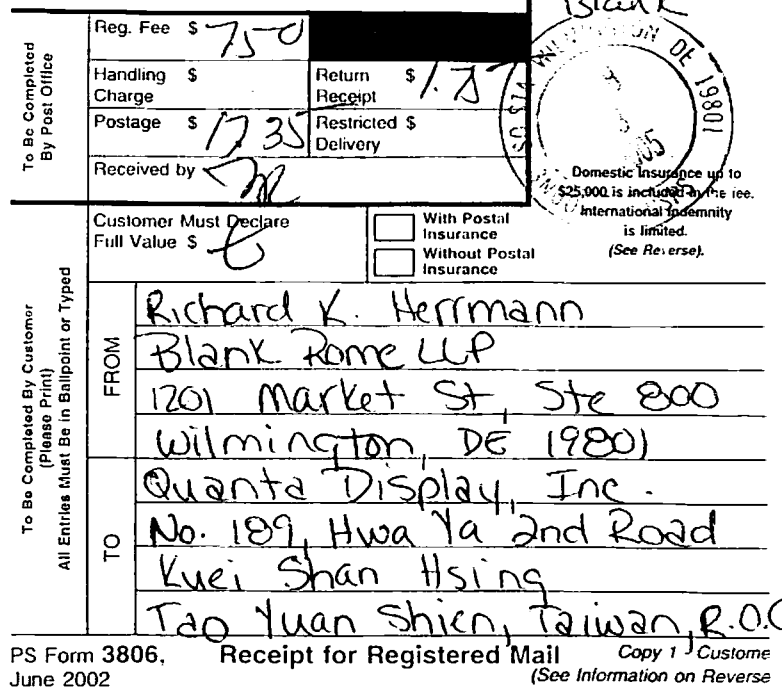 Blank
Reg. Fee $ 7.50
Handling Charge $
Return Receipt $ 1.75
Postage $ 17.35
Restricted Delivery $
Received by
To Be Completed By Post Office
WILMINGTON DE 19801
Domestic Insurance up to
$25,000 is included in the fee.
International Indemnity
is limited.
(See Reverse).
Customer Must Declare
Full Value $
With Postal Insurance
Without Postal Insurance
To Be Completed By Customer
(Please Print)
All Entries Must Be in Ballpoint or Typed
FROM
Richard K. Herrmann
Blank Rome LLP
1201 Market St, Ste 800
Wilmington, DE 19801
TO
Quanta Display, Inc.
No. 189, Hwa Ya 2nd Road
Kuei Shan Hsing
Tao Yuan Shien, Taiwan, R.O.C
PS Form 3806,
June 2002
Receipt for Registered Mail
Copy 1 - Custome
(See Information on Reverse